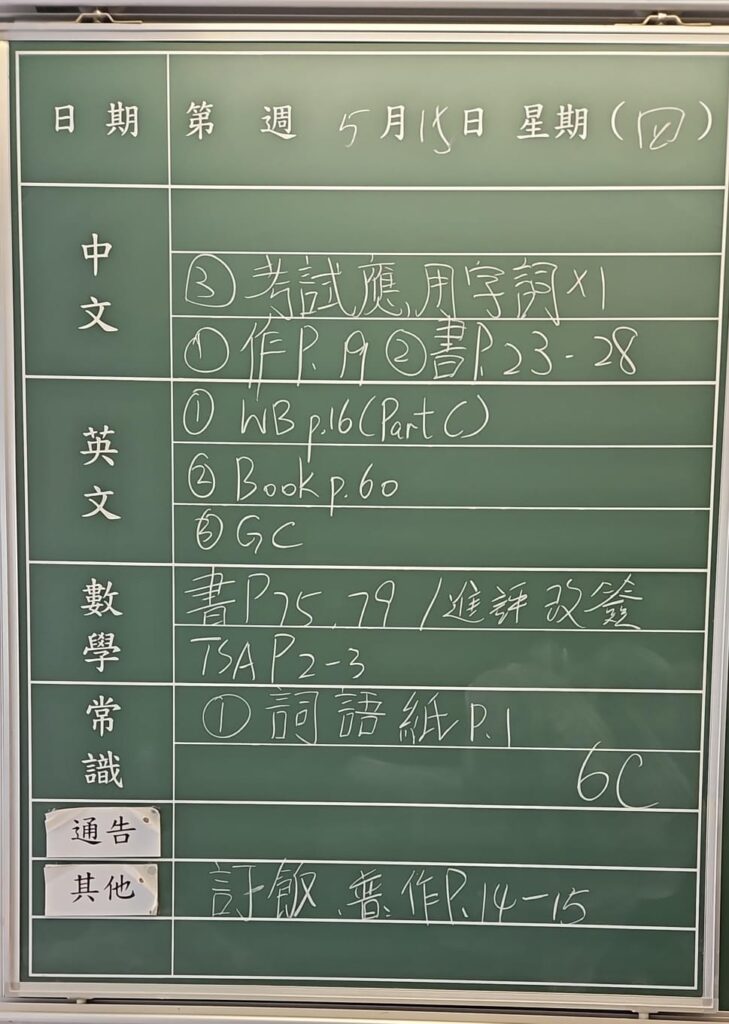 日期 第 週 5月15日 星期(四)
中文
③考試應用字詞×1
①作P.19 ②書P.23-28
英文
① WB p.16(Part C)
② Book p.60
③ GC
數學
書P75,79/進評改簽
TSA P2-3
常識
①詞語紙P.1
6C
通告
其他
訂飯、普:作P.14-15